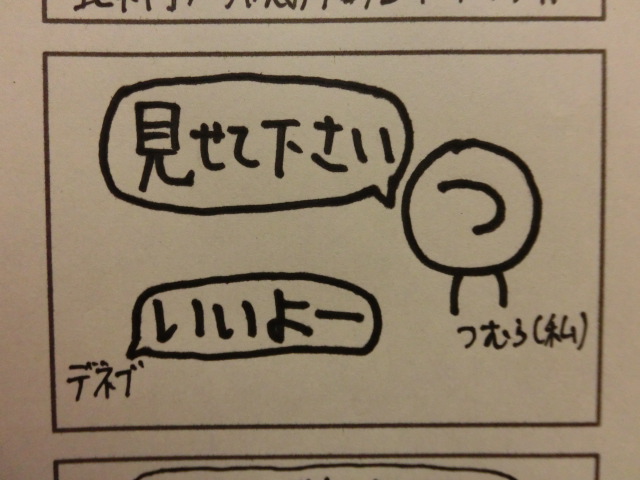 見せて下さい
つ
いいよー
つむら(私)
デネブ